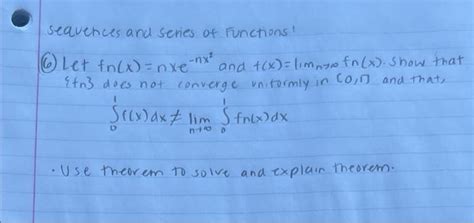 sequences and series of Functions!
⑥ Let fn(x) = nxe^{-nx²} and f(x) = lim_{n→∞} fn(x). Show that
{fn} does not converge uniformly in [0,1] and that,
∫₀¹ f(x)dx ≠ lim_{n→∞} ∫₀¹ fn(x)dx
· Use theorem to solve and explain theorem.